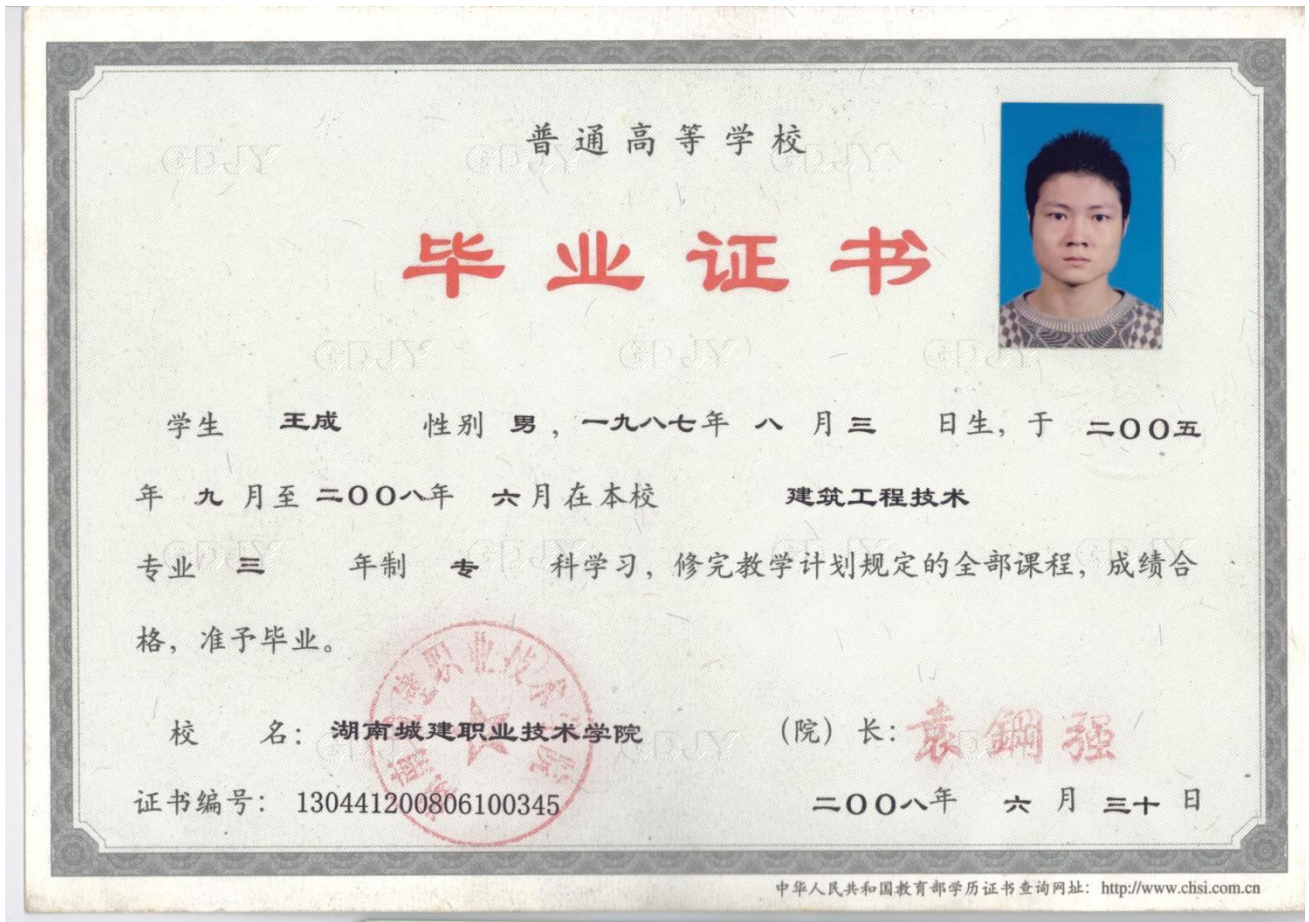 普通高等学校
毕业证书
学生 王成 性别 男，一九八七年 八 月 三 日生，于 二〇〇五
年 九 月至 二〇〇八年 六 月在本校 建筑工程技术
专业 三 年制 专 科学习，修完教学计划规定的全部课程，成绩合
格，准予毕业。
校 名：湖南城建职业技术学院 （院）长：袁鋼强
证书编号：130441200806100345 二〇〇八年 六 月 三十 日
湖南城建职业技术学院
中华人民共和国教育部学历证书查询网址：http://www.chsi.com.cn